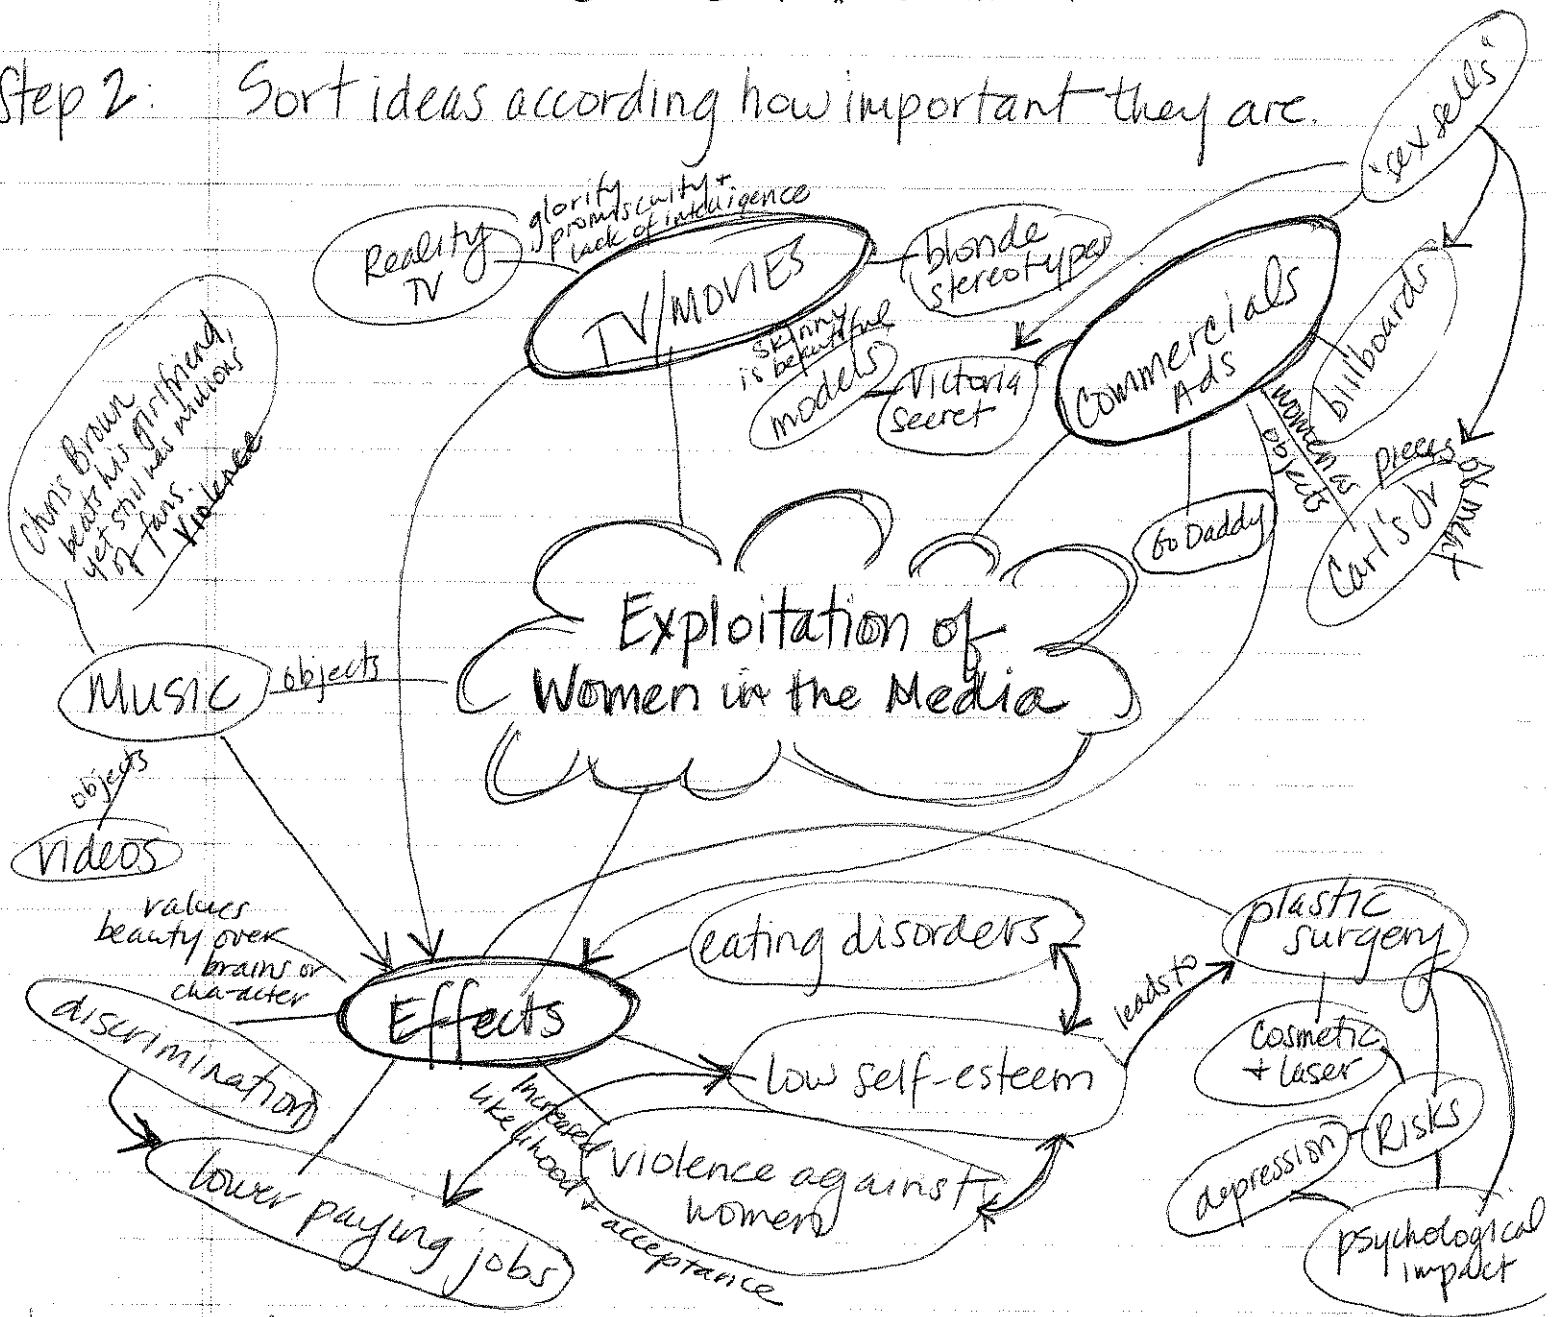 Step 2: Sort ideas according how important they are.
"sex sells"
Reality
TV
glorify
promiscuity +
lack of intelligence
TV/MOVIES
blonde
stereotypes
skinny
is beautiful
models
Victoria
Secret
Commercials
Ads
billboards
women as
objects
pieces of meat
Carl's Jr
Go Daddy
Chris Brown
beats his girlfriend,
yet still has millions
of fans.
Violence
Music
objects
objects
videos
Exploitation of
Women in the Media
values
beauty over
brains or
character
Effects
discrimination
lower paying jobs
eating disorders
low self-esteem
Increased
likelihood + acceptance
violence against
women
leads to
plastic
surgery
Cosmetic
+ laser
Risks
depression
psychological
impact